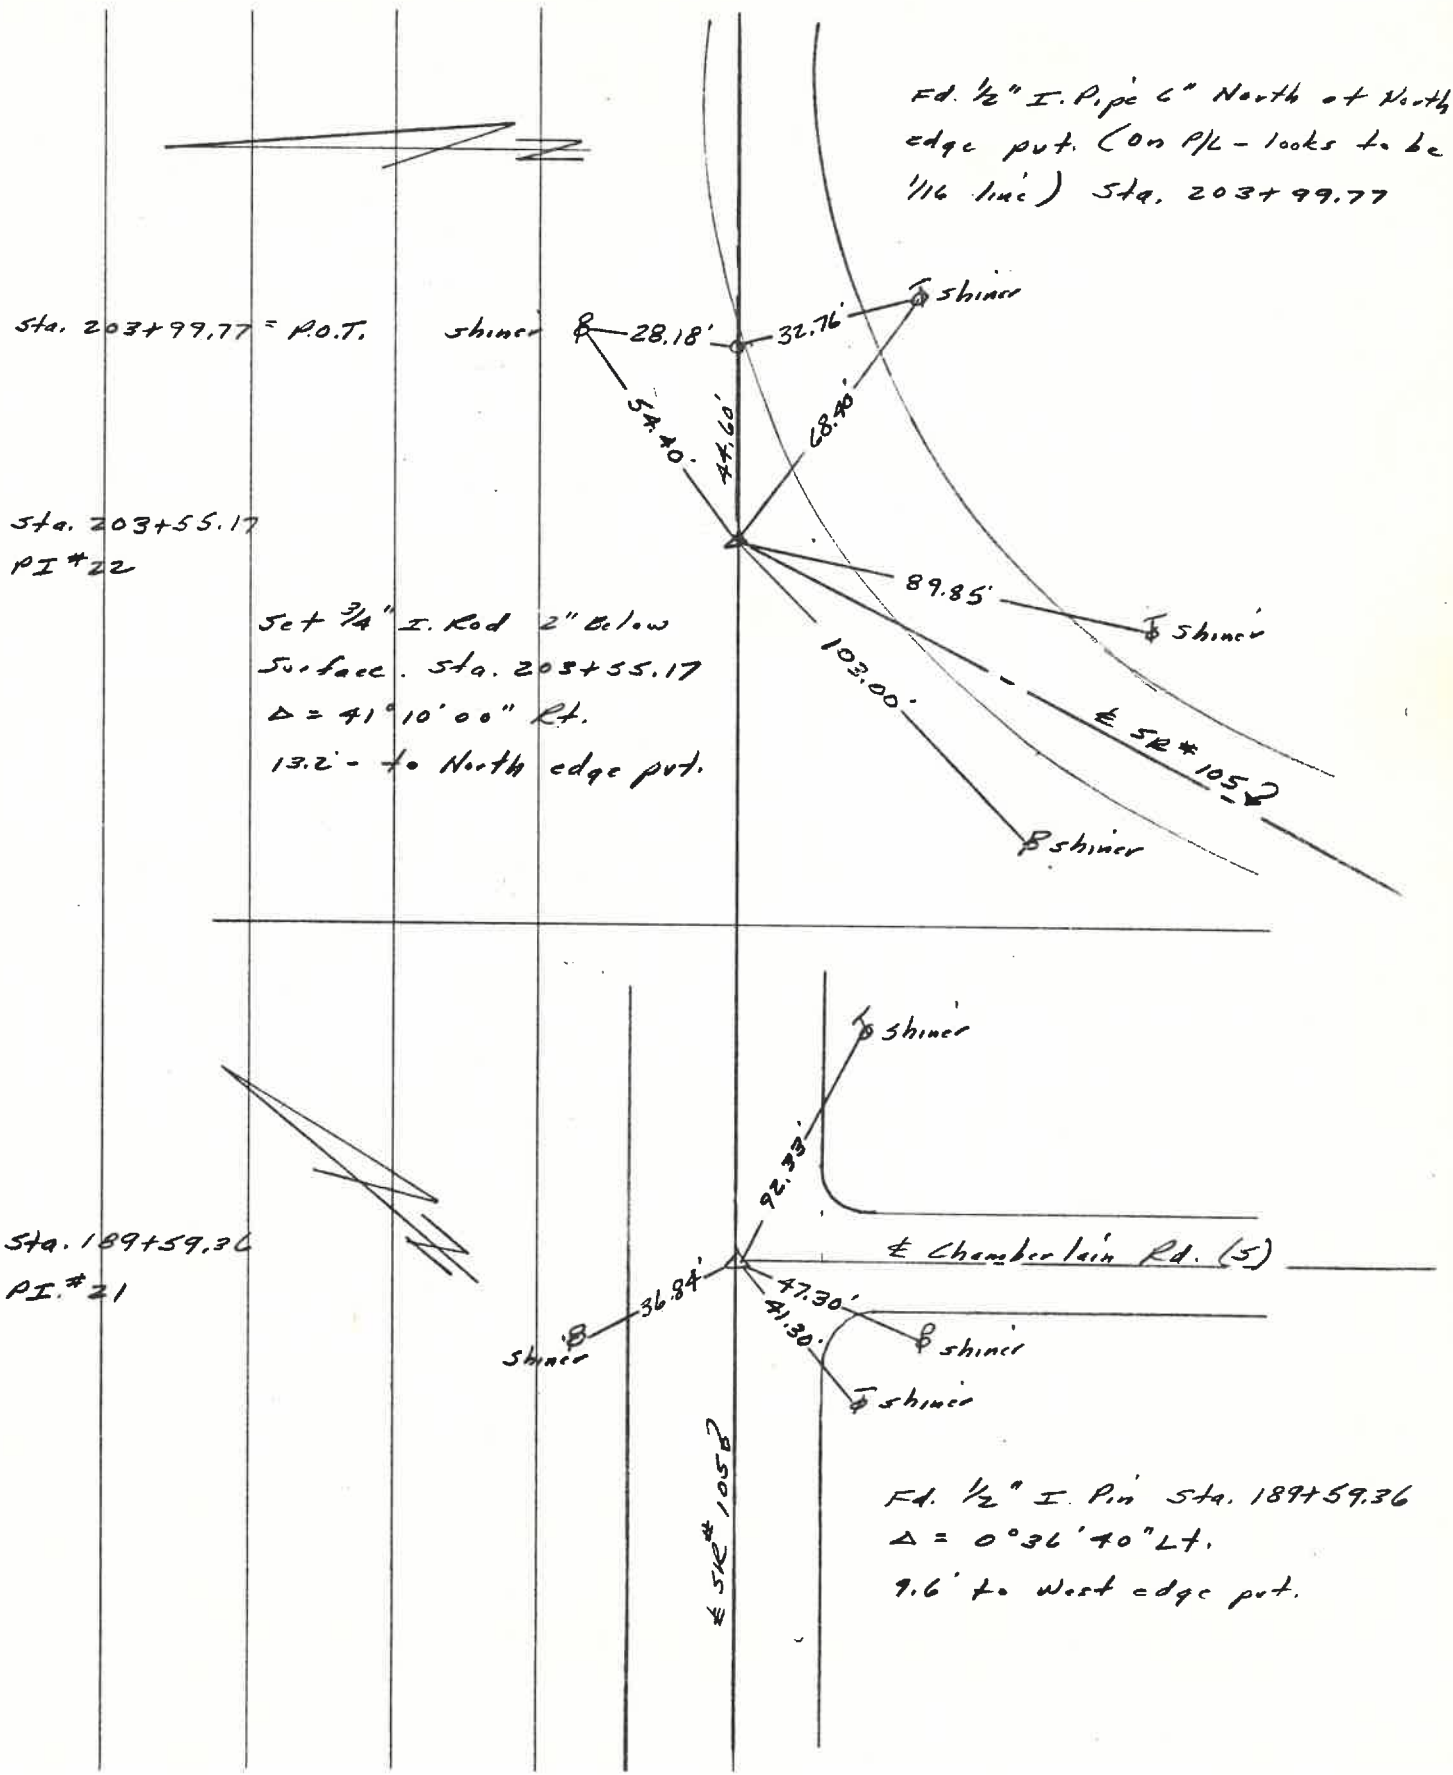 Fd. 1/2" I. Pipe 6" North of North
edge pvt. (on P/L - looks to be
1/16 line) Sta. 203+99.77
shiner
Sta. 203+99.77 = P.O.T.
shiner
28.18'
32.76'
54.40'
44.60'
68.40'
Sta. 203+55.17
PI #22
89.85'
shiner
Set 3/4" I. Rod 2" Below
Surface. Sta. 203+55.17
Δ = 41°10'00" Rt.
13.2' - to North edge pvt.
103.00'
℄ SR # 105
shiner
shiner
92.33'
Sta. 189+59.36
PI. #21
℄ Chamberlain Rd. (S)
36.84'
47.30'
41.30'
shiner
shiner
shiner
℄ SR # 105
Fd. 1/2" I. Pin Sta. 189+59.36
Δ = 0°36'40" Lt.
9.6' to West edge pvt.